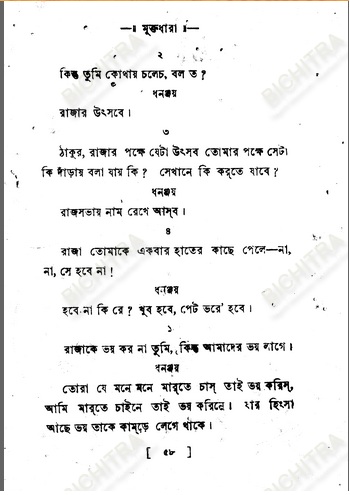 —॥ মুক্তধারা ॥—
২
কিন্তু তুমি কোথায় চলেচ, বল ত ?
ধনঞ্জয়
রাজার উৎসবে।
৩
ঠাকুর, রাজার পক্ষে যেটা উৎসব তোমার পক্ষে সেটা
কি দাঁড়ায় বলা যায় কি ? সেখানে কি করতে যাবে ?
ধনঞ্জয়
রাজসভায় নাম রেখে আস্‌ব।
৪
রাজা তোমাকে একবার হাতের কাছে পেলে—না,
না, সে হবে না !
ধনঞ্জয়
হবে না কি রে ? খুব হবে, পেট ভরে' হবে।
১
রাজাকে ভয় কর না তুমি, কিন্তু আমাদের ভয় লাগে।
ধনঞ্জয়
তোরা যে মনে মনে মার্‌তে চাস্ তাই ভয় করিস্,
আমি মার্‌তে চাইনে তাই ভয় করিনে। যার হিংসা
আছে ভয় তাকে কাম্‌ড়ে লেগে থাকে।
[ ৫৮ ]
BICHITRA
BICHITRA
BICHITRA
BICHITRA
BICHITRA
BICHITRA